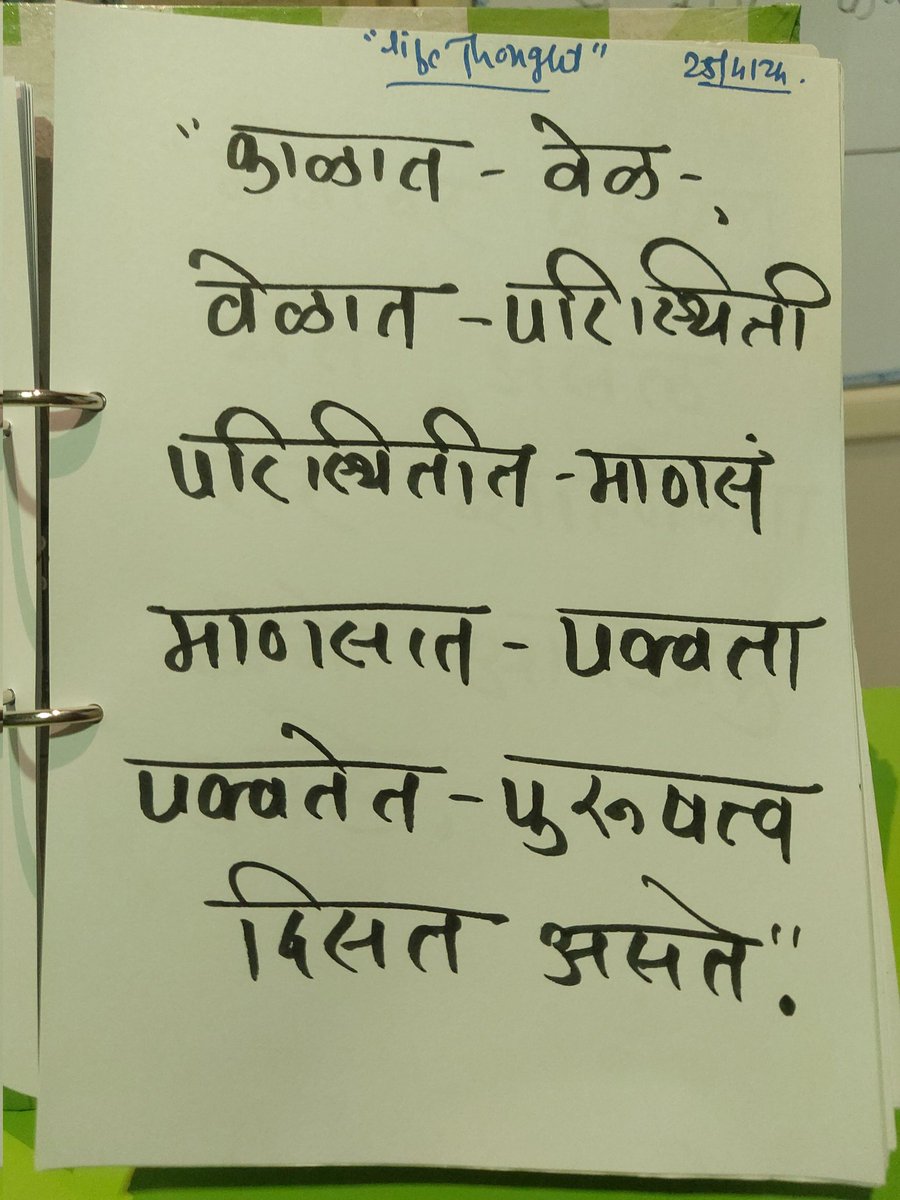 "life Thought" 25/4/24.
"काळात - वेळ -,
वेळात - परिस्थिती
परिस्थितीत - माणसं
माणसात - पक्वता
पक्वतेत - पुरूषत्व
दिसत असते".